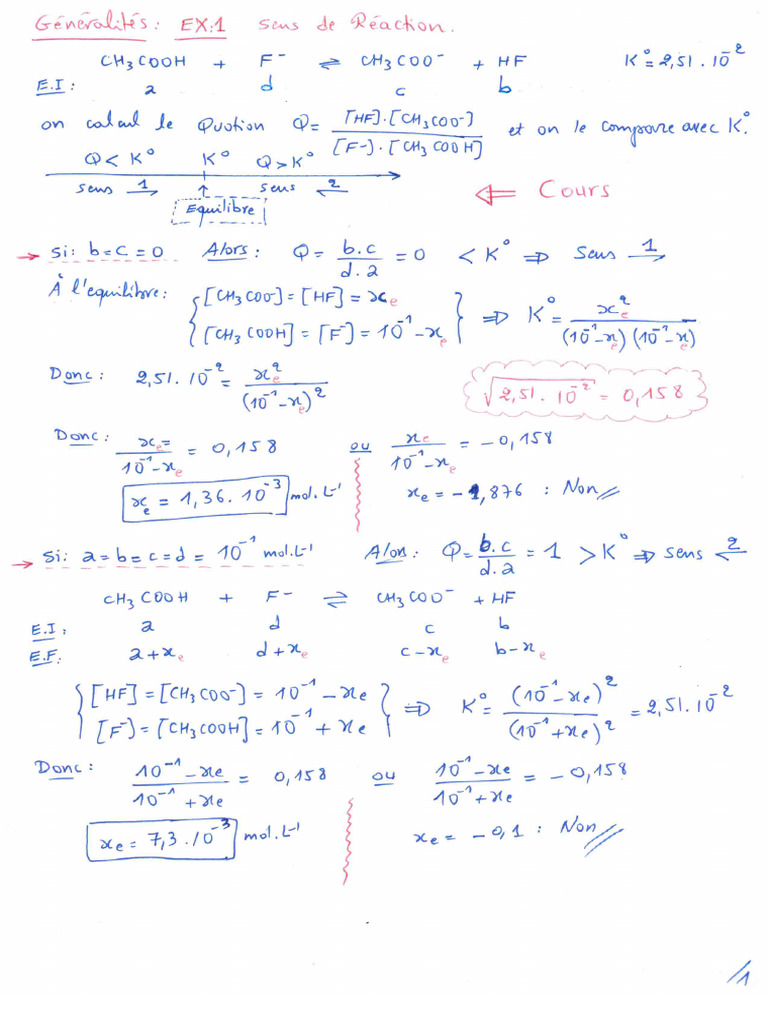 Généralités : EX:1 Sens de Réaction.
CH₃COOH + F⁻ ⇌ CH₃COO⁻ + HF K° = 2,51 . 10⁻²
E.I : a d c b
on calcul le Quotion Q = [HF].[CH₃COO⁻] / [F⁻].[CH₃COOH] et on le comprare avec K°.
Q < K° K° Q > K°
sens 1→ ↑ sens ←2
Equilibre
⇐ Cours
→ Si: b = c = 0 Alors : Q = b.c / d.a = 0 < K° ⇒ Sens 1→
À l'equilibre: { [CH₃COO⁻] = [HF] = xe
[CH₃COOH] = [F⁻] = 10⁻¹ - xe } ⇒ K° = xe² / (10⁻¹ - xe)(10⁻¹ - xe)
Donc : 2,51 . 10⁻² = xe² / (10⁻¹ - xe)²
√2,51 . 10⁻² = 0,158
Donc : xe= / 10⁻¹ - xe = 0,158 ou xe / 10⁻¹ - xe = - 0,158
xe = 1,36 . 10⁻³ mol.L⁻¹ xe = - 1,876 : Non //
→ Si: a = b = c = d = 10⁻¹ mol.L⁻¹ Alon : Q = b.c / d.a = 1 > K° ⇒ sens ←2
CH₃COOH + F⁻ ⇌ CH₃COO⁻ + HF
E.I : a d c b
E.F. a + xe d + xe c - xe b - xe
{ [HF] = [CH₃COO⁻] = 10⁻¹ - xe
[F⁻] = [CH₃COOH] = 10⁻¹ + xe } ⇒ K° = (10⁻¹ - xe)² / (10⁻¹ + xe)² = 2,51 . 10⁻²
Donc : 10⁻¹ - xe / 10⁻¹ + xe = 0,158 ou 10⁻¹ - xe / 10⁻¹ + xe = - 0,158
xe = 7,3 . 10⁻³ mol.L⁻¹ xe = - 0,1 : Non //
/1